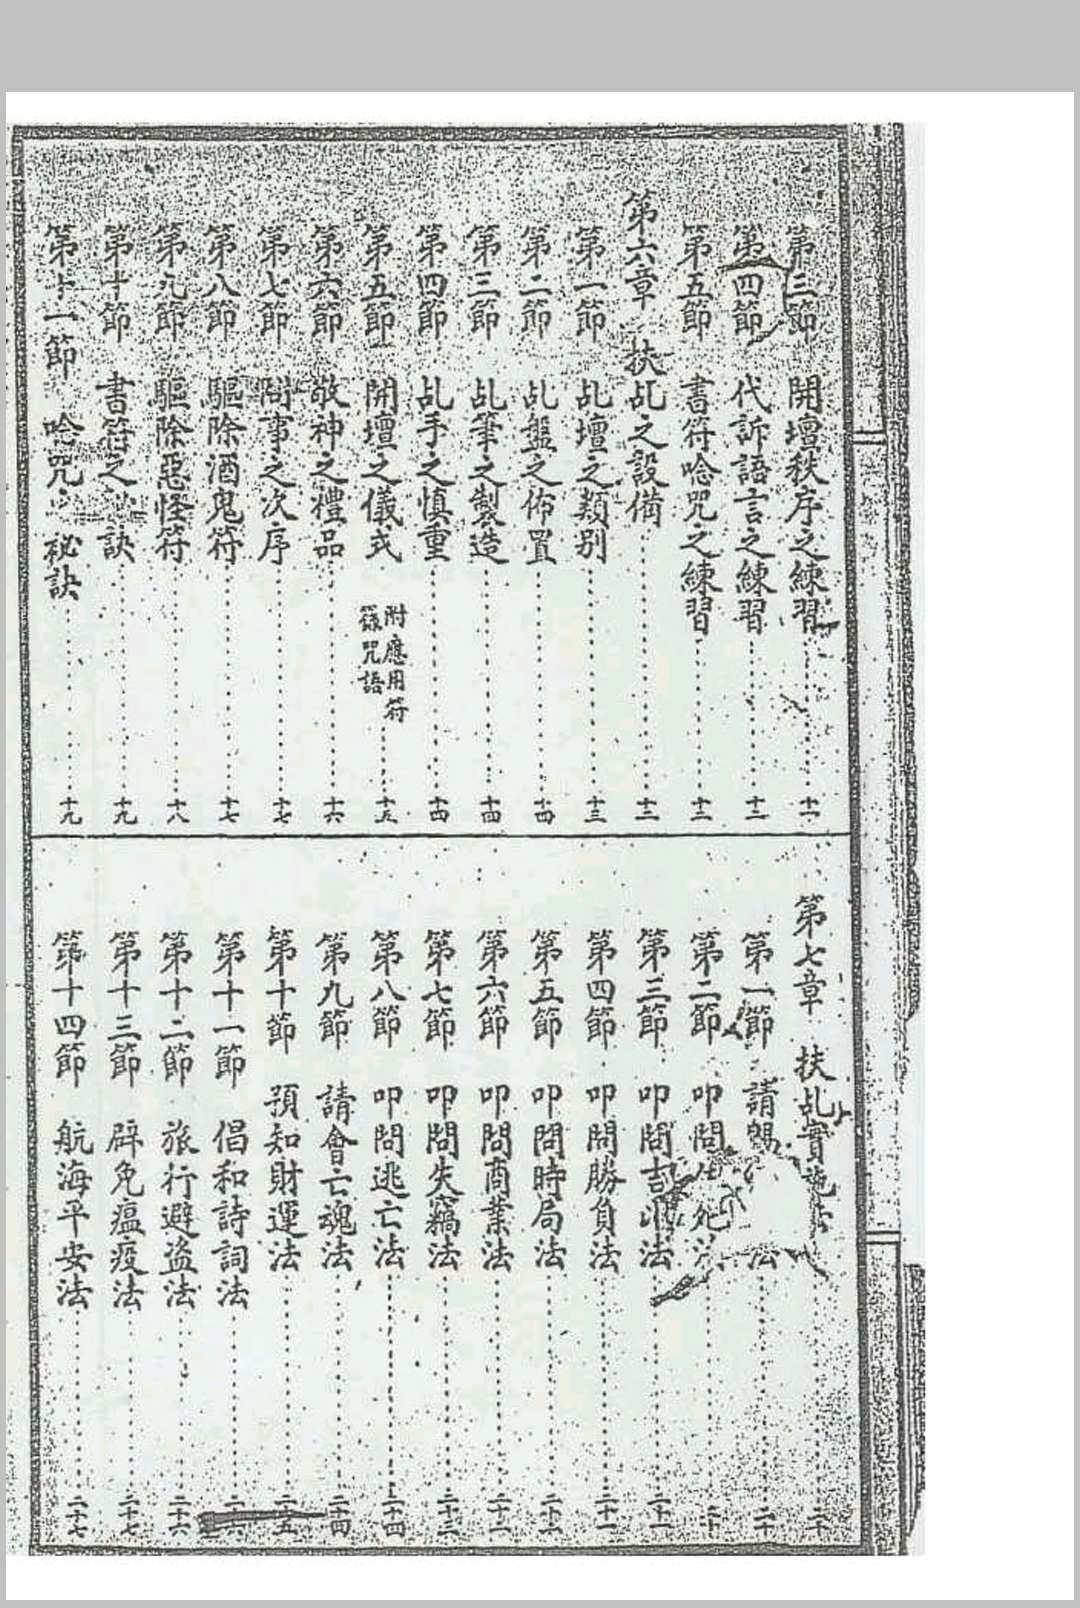 第三節 開壇秩序之練習 十一
第四節 代訴語言之練習 十二
第五節 書符唸咒之練習 十二
第六章 扶乩之設備 十二
第一節 乩壇之類別 十三
第二節 乩盤之佈置 十四
第三節 乩筆之製造 十四
第四節 乩手之慎重 十四
第五節 開壇之儀式 附應用符籙咒語 十五
第六節 敬神之禮品 十六
第七節 問事之次序 十七
第八節 驅除酒鬼符 十七
第九節 驅除惡怪符 十八
第十節 書符之 訣 十九
第十一節 唸咒之秘訣 十九
第七章 扶乩實 法 二十
第一節 請 法 二十
第二節 叩問 死法 二十
第三節 叩問吉 法 二十一
第四節 叩問勝負法 二十一
第五節 叩問時局法 二十二
第六節 叩問商業法 二十二
第七節 叩問失竊法 二十三
第八節 叩問逃亡法 二十四
第九節 請會亡魂法 二十四
第十節 預知財運法 二十五
第十一節 倡和詩詞法 二十
第十二節 旅行避盜法 二十六
第十三節 辟免瘟疫法 二十七
第十四節 航海平安法 二十七